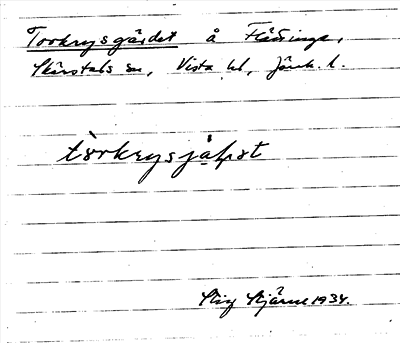 Torkrysgärdet å Flättinge,
Skärstads sn, Vista hd, Jönk. l.
tòrkrysjáḷṣt
Stig Stjärne 1934.